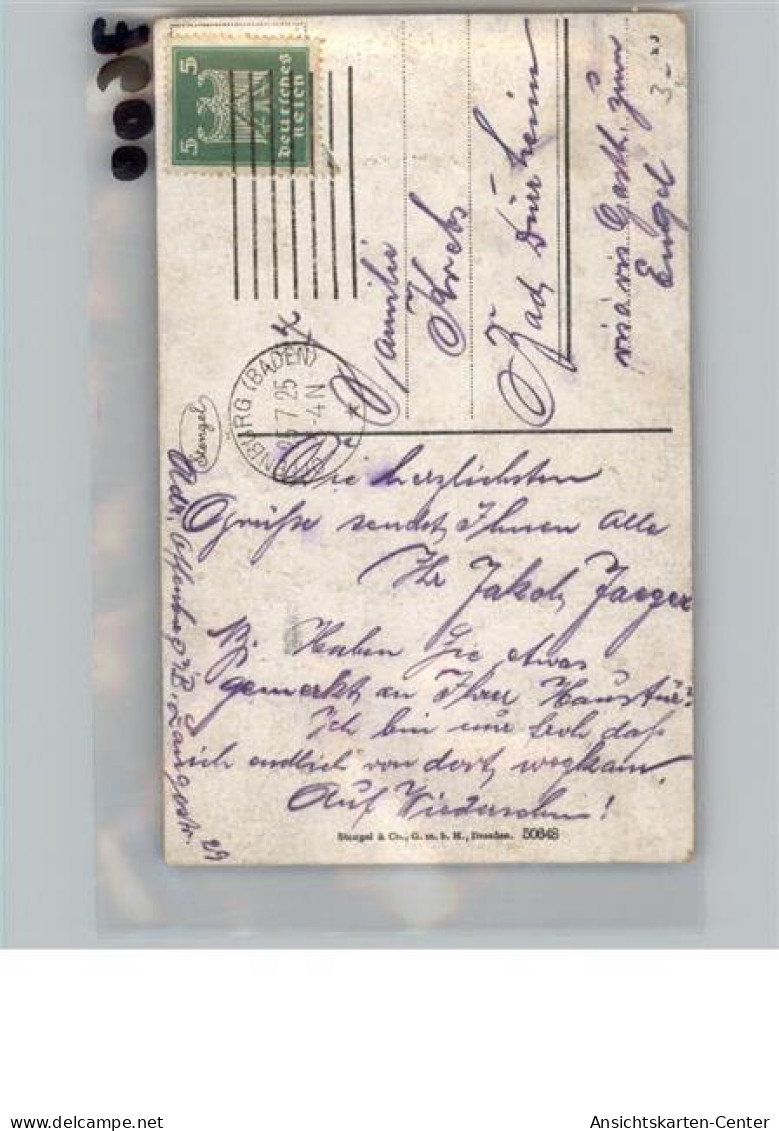 5 5
Deutsches
Reich
(BADEN)
7.25
-4N
Familie
Krebs
Bad Dürrheim
vis à vis Gasth. zum
Engel
3.-
Stengel
Die herzlichsten
Grüße sendet Ihnen Alle
Ihr Jakob Jaeger
Haben Sie etwas
gemerkt an Ihrer Haustür?
Ich bin nur froh daß
ich endlich von dort wegkam.
Auf Wiedersehn!
Adr. Offenburg i/B. Langestr. 29
Stengel & Co., G. m. b. H., Dresden. 50648
Ansichtskarten-Center